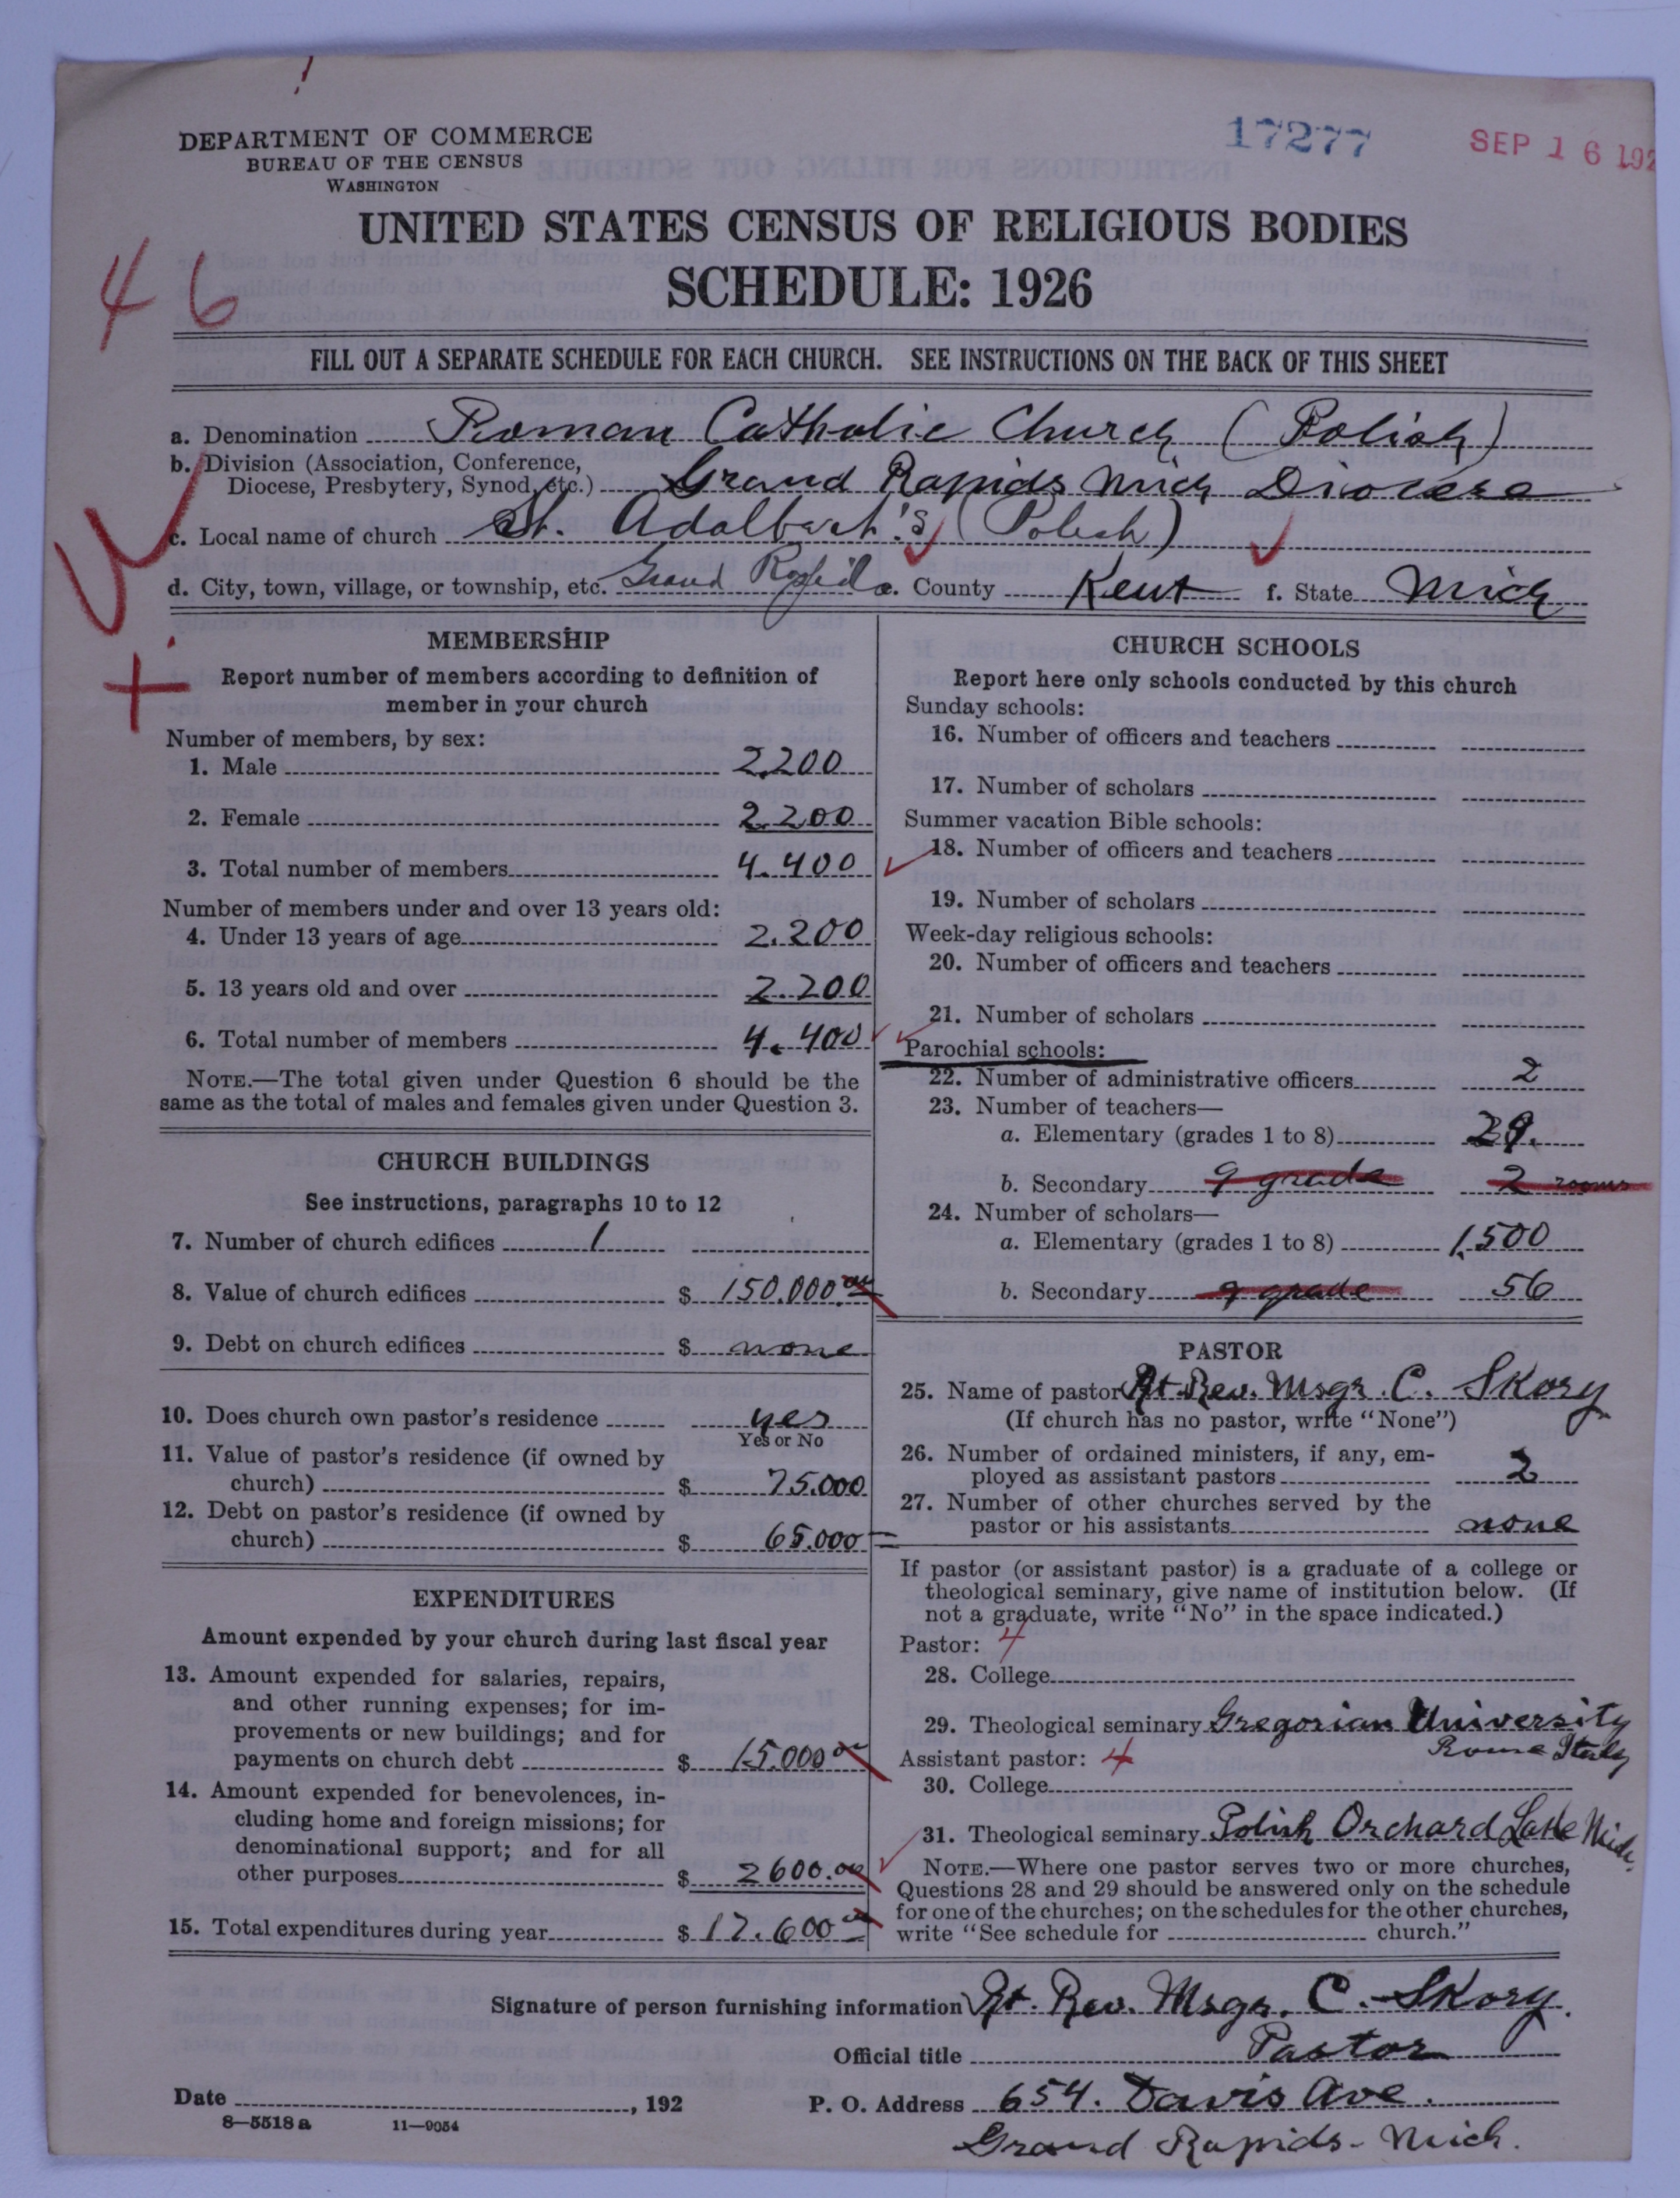 17277
SEP 16 192
DEPARTMENT OF COMMERCE
BUREAU OF THE CENSUS
WASHINGTON
UNITED STATES CENSUS OF RELIGIOUS BODIES
SCHEDULE: 1926
46
FILL OUT A SEPARATE SCHEDULE FOR EACH CHURCH. SEE INSTRUCTIONS ON THE BACK OF THIS SHEET
a. Denomination Roman Catholic Church (Polish)
b. Division (Association, Conference,
Diocese, Presbytery, Synod, etc.) Grand Rapids Mich Diocese
c. Local name of church St. Adalbert's (Polish)
d. City, town, village, or township, etc. Grand Rapids e. County Kent f. State Mich
MEMBERSHIP
Report number of members according to definition of
member in your church
Number of members, by sex:
1. Male 2.200
2. Female 2.200
3. Total number of members 4.400
Number of members under and over 13 years old:
4. Under 13 years of age 2.200
5. 13 years old and over 2.200
6. Total number of members 4.400
NOTE.—The total given under Question 6 should be the
same as the total of males and females given under Question 3.
CHURCH BUILDINGS
See instructions, paragraphs 10 to 12
7. Number of church edifices 1
8. Value of church edifices $ 150.000.00
9. Debt on church edifices $ none
10. Does church own pastor's residence yes
Yes or No
11. Value of pastor's residence (if owned by
church) $ 75.000
12. Debt on pastor's residence (if owned by
church) $ 65.000
EXPENDITURES
Amount expended by your church during last fiscal year
13. Amount expended for salaries, repairs,
and other running expenses; for im-
provements or new buildings; and for
payments on church debt $ 15.000 00
14. Amount expended for benevolences, in-
cluding home and foreign missions; for
denominational support; and for all
other purposes $ 2600.00
15. Total expenditures during year $ 17.600 00
CHURCH SCHOOLS
Report here only schools conducted by this church
Sunday schools:
16. Number of officers and teachers
17. Number of scholars
Summer vacation Bible schools:
18. Number of officers and teachers
19. Number of scholars
Week-day religious schools:
20. Number of officers and teachers
21. Number of scholars
Parochial schools:
22. Number of administrative officers 2
23. Number of teachers—
a. Elementary (grades 1 to 8) 29.
b. Secondary 9 grade 2 rooms
24. Number of scholars—
a. Elementary (grades 1 to 8) 1.500
b. Secondary 9 grade 56
PASTOR
25. Name of pastor Rt. Rev. Msgr. C. Skory
(If church has no pastor, write "None")
26. Number of ordained ministers, if any, em-
ployed as assistant pastors 2
27. Number of other churches served by the
pastor or his assistants none
If pastor (or assistant pastor) is a graduate of a college or
theological seminary, give name of institution below. (If
not a graduate, write "No" in the space indicated.)
Pastor: 4
28. College
29. Theological seminary Gregorian University
Rome Italy
Assistant pastor: 4
30. College
31. Theological seminary Polish Orchard Lake Mich.
NOTE.—Where one pastor serves two or more churches,
Questions 28 and 29 should be answered only on the schedule
for one of the churches; on the schedules for the other churches,
write "See schedule for church."
Signature of person furnishing information Rt. Rev. Msgr. C. Skory.
Official title Pastor
Date , 192
P. O. Address 654. Davis Ave.
8—5518 a 11—9054
Grand Rapids - Mich.